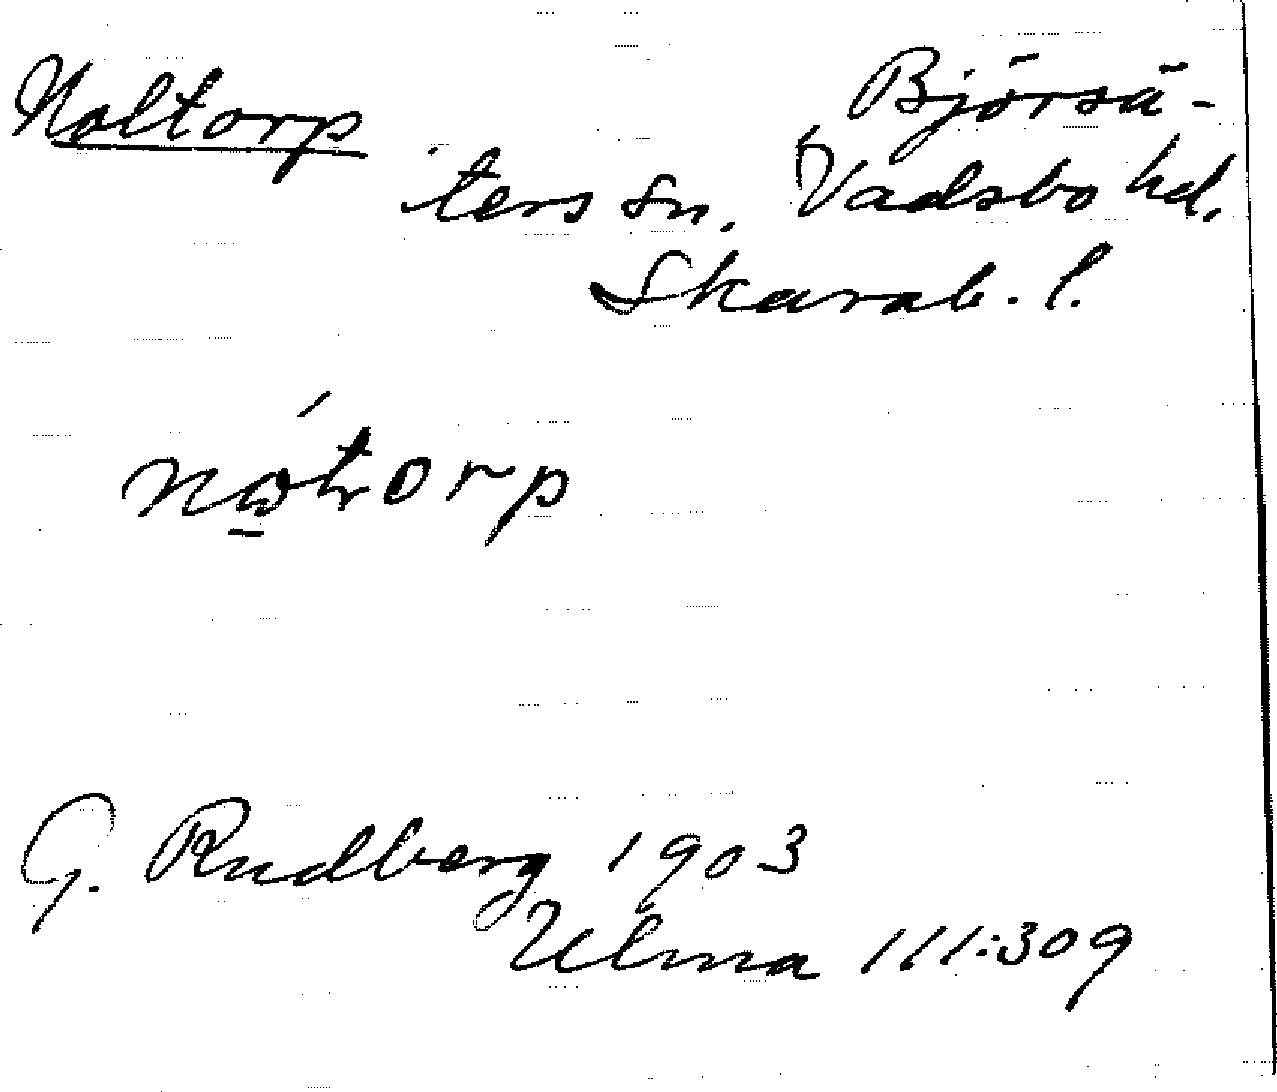 Noltorp
Björsä-
ters sn. Vadsbo hd.
Skarab. l.
G. Rudberg 1903
Ulma 111:309